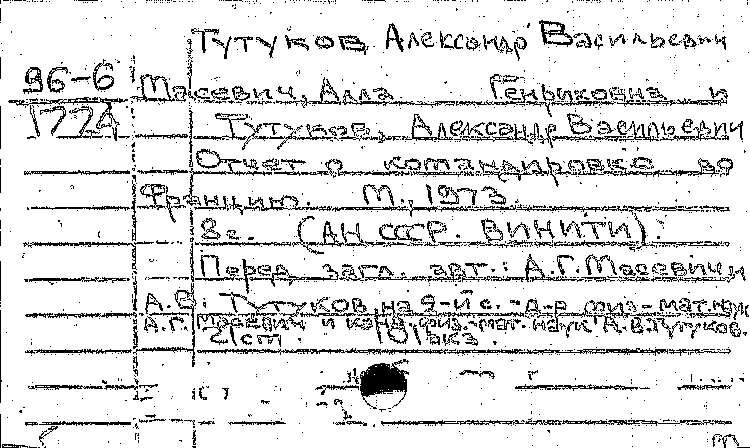 Тутуков Александр Васильевич
96-6
1724
Масевич, Алла Генриховна и
Тутуков, Александр Васильевич
Отчет о командировке во
Францию. М., 1973.
8с. (АН СССР. ВИНИТИ).
Перед загл. авт.: А.Г.Масевич,и
А.В. Тутуков, на 2-й с. - д-р физ-мат.наук
А.Г. Масевич и канд. физ.-мат. наук А.В.Тутуков.
ст. 10 экз.